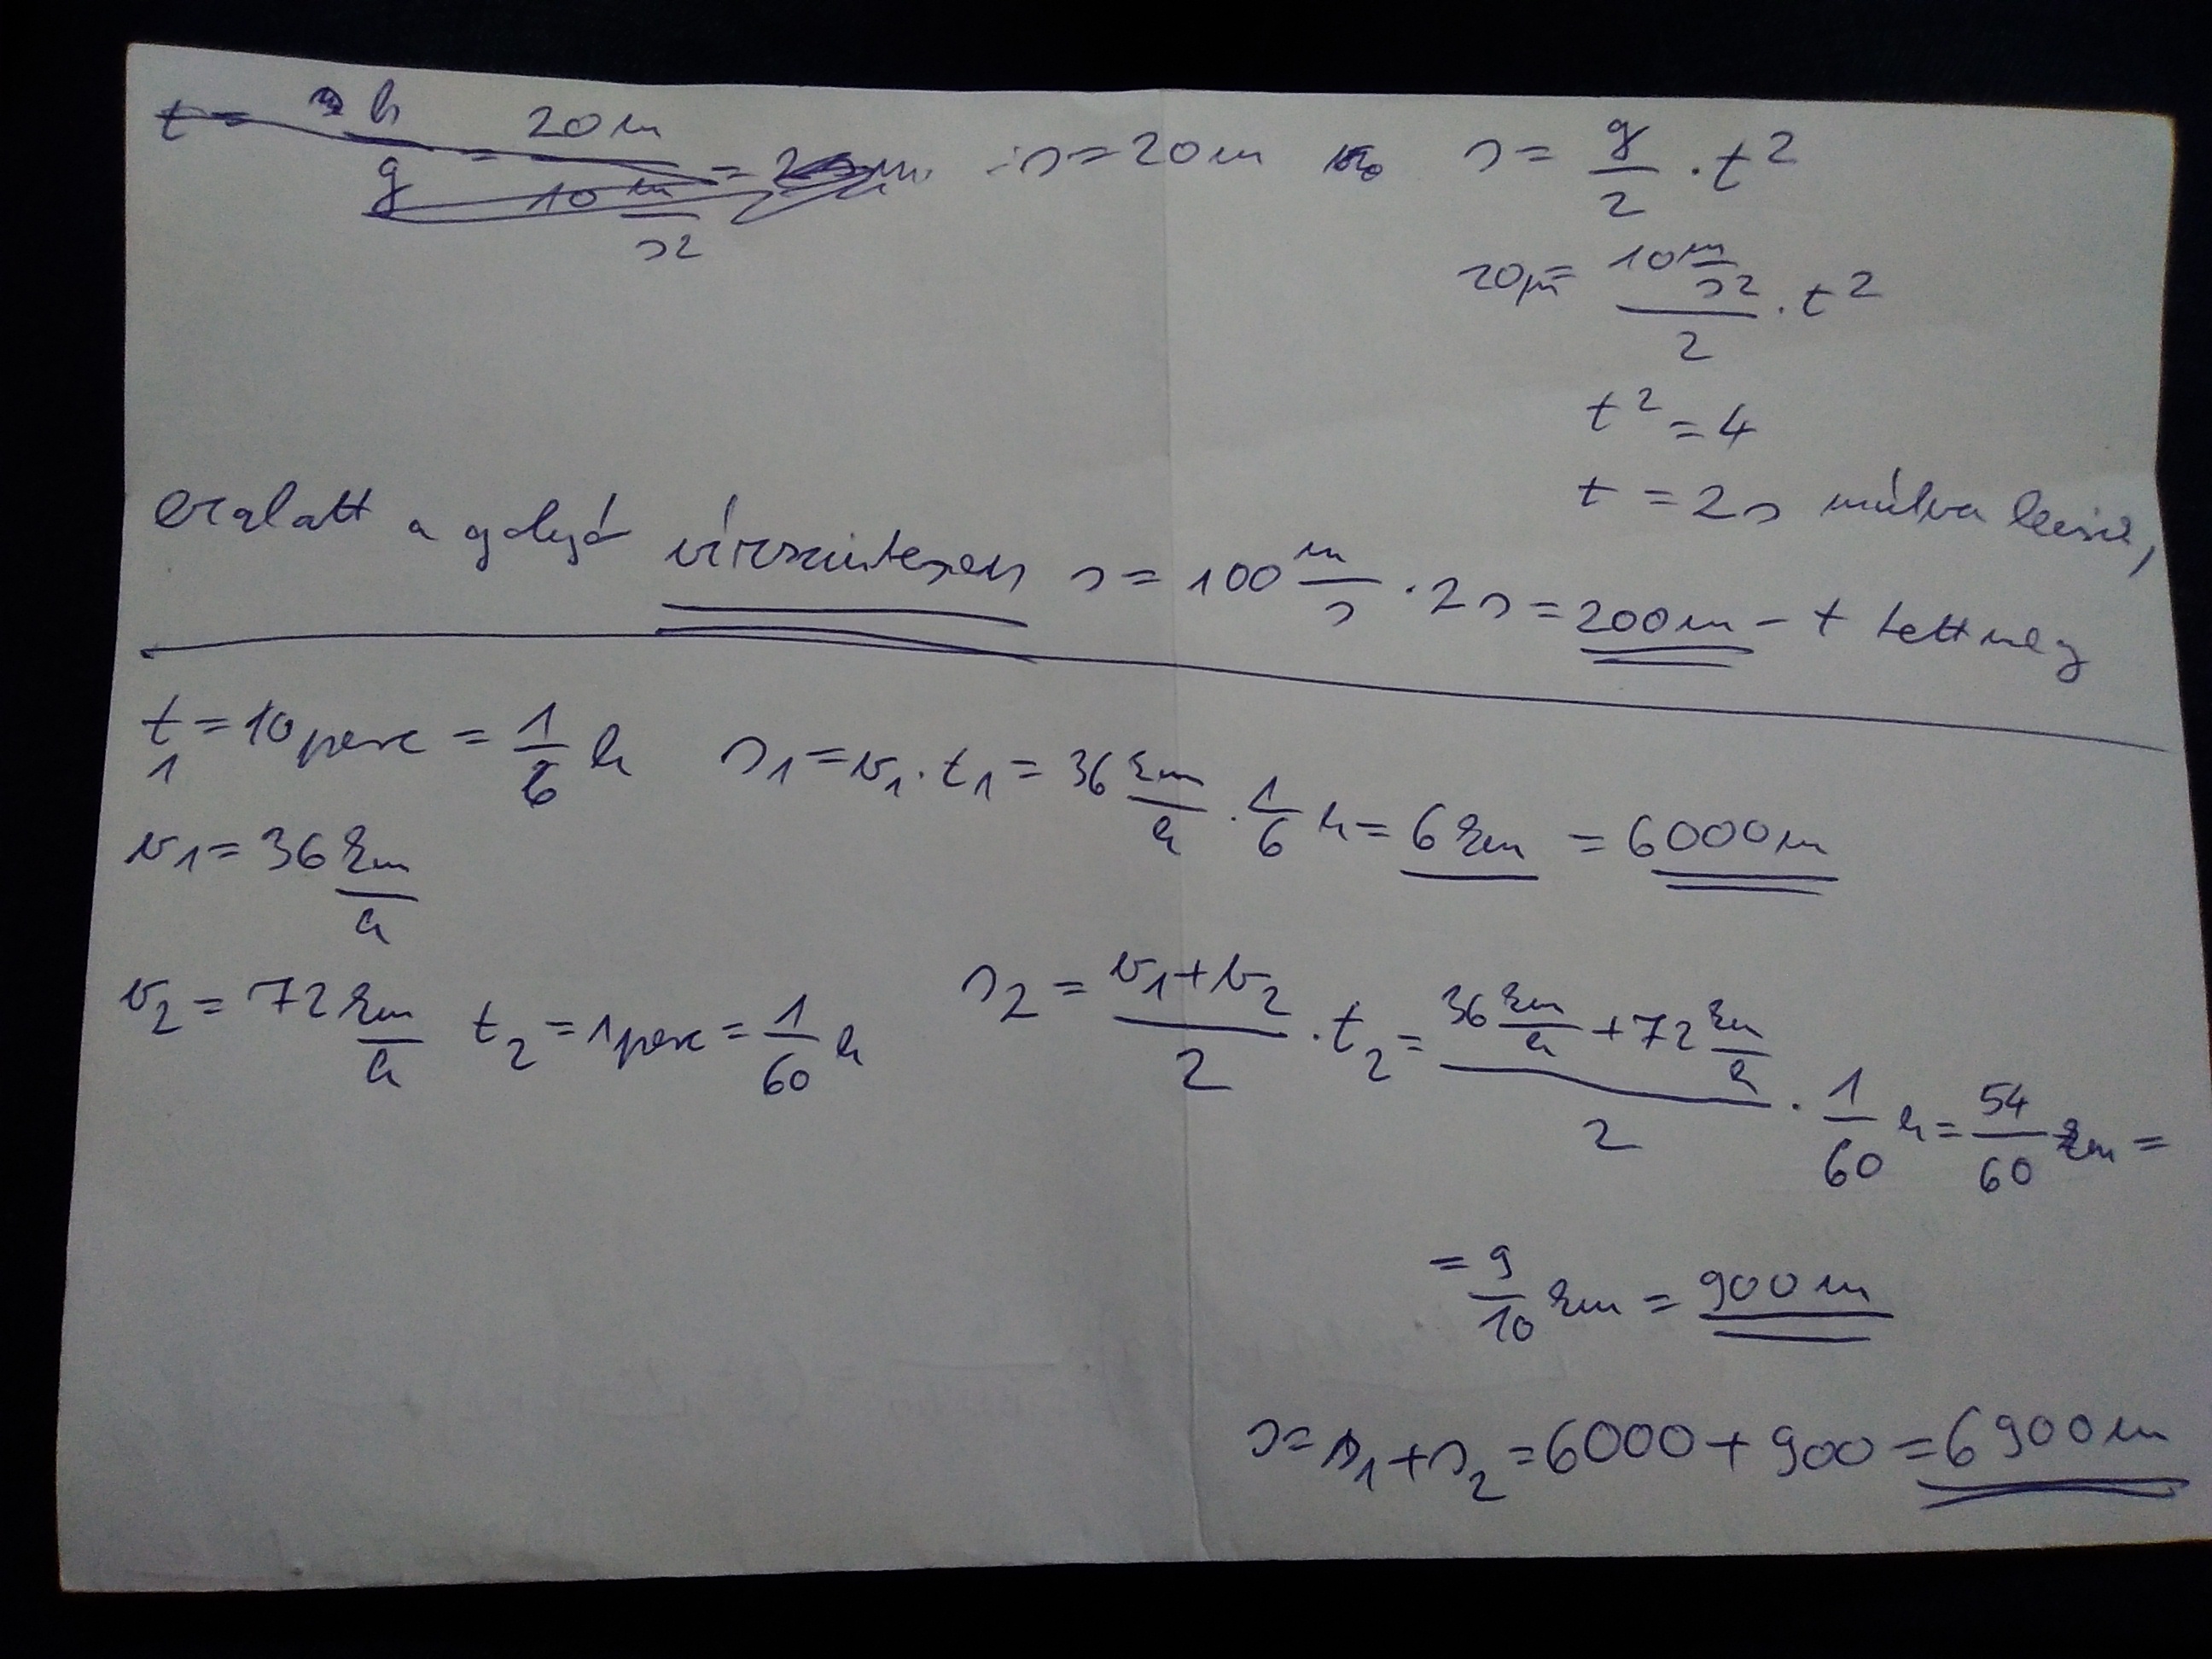 t = h/g = 20m / 10 m/s² = 2 s = 20m s = g/2 · t²
20m = (10 m/s²)/2 · t²
t² = 4
t = 2s múlva leesik,
ezalatt a golyó vízszintesen s = 100 m/s · 2s = 200m-t tett meg
t₁ = 10 perc = 1/6 h s₁ = v₁ · t₁ = 36 km/h · 1/6 h = 6 km = 6000m
v₁ = 36 km/h
v₂ = 72 km/h t₂ = 1 perc = 1/60 h s₂ = (v₁ + v₂)/2 · t₂ = (36 km/h + 72 km/h)/2 · 1/60 h = 54/60 km =
= 9/10 km = 900 m
s = s₁ + s₂ = 6000 + 900 = 6900 m